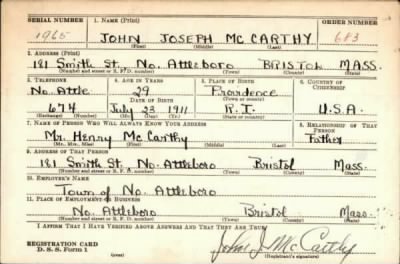 SERIAL NUMBER 1. NAME (Print) ORDER NUMBER
1965 JOHN JOSEPH MC CARTHY 683
(First) (Middle) (Last)
2. ADDRESS (Print)
181 Smith St. No. Attleboro BRISTOL MASS.
(Number and street or R. F. D. number) (Town) (County) (State)
3. TELEPHONE 4. AGE IN YEARS 5. PLACE OF BIRTH 6. COUNTRY OF CITIZENSHIP
No. Attle. 29 Providence
DATE OF BIRTH (Town or county)
674 July 23 1911 R.I. U.S.A.
(Exchange) (Number) (Mo.) (Day) (Yr.) (State or country)
7. NAME OF PERSON WHO WILL ALWAYS KNOW YOUR ADDRESS 8. RELATIONSHIP OF THAT PERSON
Mr. Henry Mc Carthy Father
(Mr., Mrs., Miss) (First) (Middle) (Last)
9. ADDRESS OF THAT PERSON
181 Smith St. No. Attleboro Bristol Mass.
(Number and street or R. F. D. number) (Town) (County) (State)
10. EMPLOYER'S NAME
Town of No. Attleboro
11. PLACE OF EMPLOYMENT OR BUSINESS
No. Attleboro Bristol Mass.
(Number and street or R. F. D. number) (Town) (County) (State)
I AFFIRM THAT I HAVE VERIFIED ABOVE ANSWERS AND THAT THEY ARE TRUE.
REGISTRATION CARD
D. S. S. Form 1 John J. Mc Carthy
(Registrant's signature)